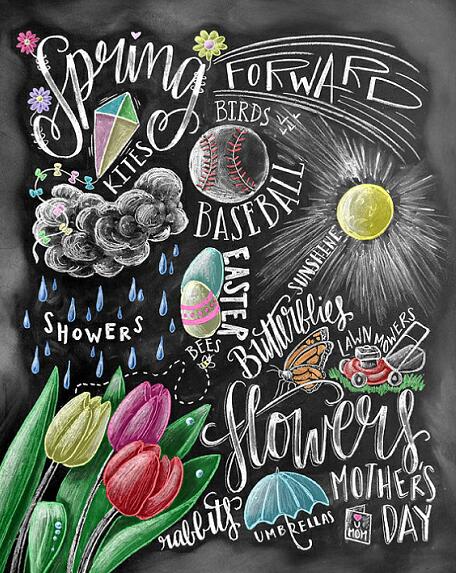 Spring
FORWARD
BIRDS
KITES
BASEBALL
SUNSHINE
EASTER
SHOWERS
Butterflies
LAWN MOWERS
BEES
flowers
MOTHER'S
DAY
rabbits
UMBRELLAS
MOM